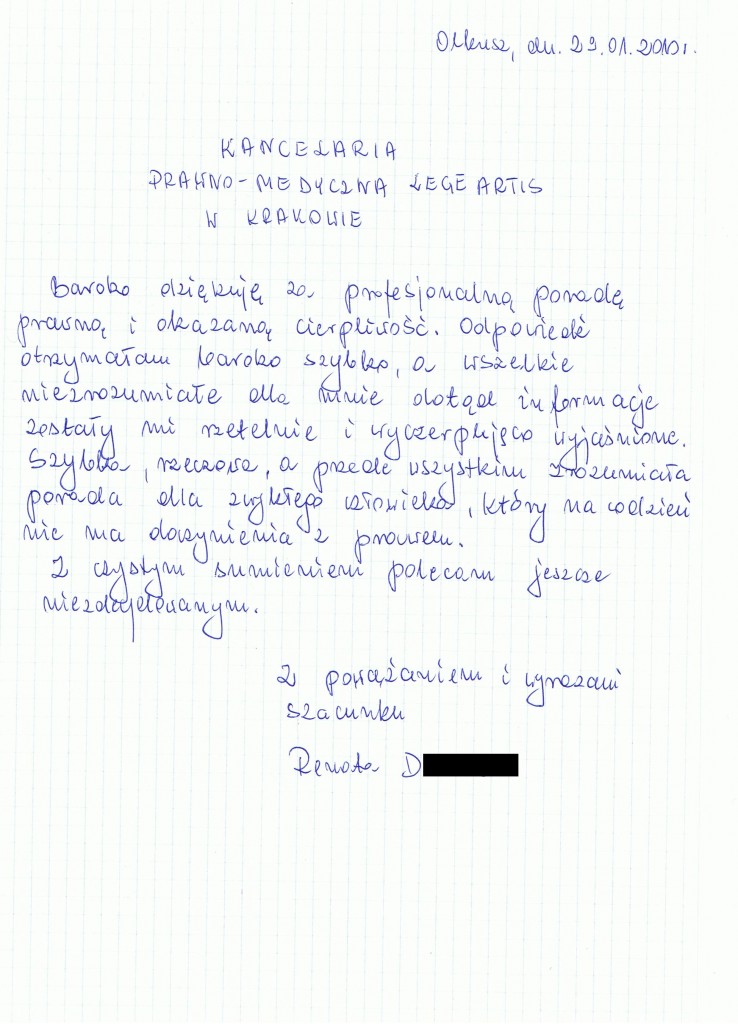 Olkusz, dn. 29.01.2010r.
KANCELARIA
PRAWNO-MEDYCZNA LEGE ARTIS
W KRAKOWIE
Bardzo dziękuję za profesjonalną poradę
prawną i okazaną cierpliwość. Odpowiedź
otrzymałam bardzo szybko, a wszelkie
niezrozumiałe dla mnie dotąd informacje
zostały mi rzetelnie i wyczerpująco wyjaśnione.
Szybka, rzeczowa, a przede wszystkim zrozumiała
porada dla zwykłego człowieka, który na codzień
nie ma doczynienia z prawem.
Z czystym sumieniem polecam jeszcze
niezdecydowanym.
Z poważaniem i wyrazami
szacunku
Renata D